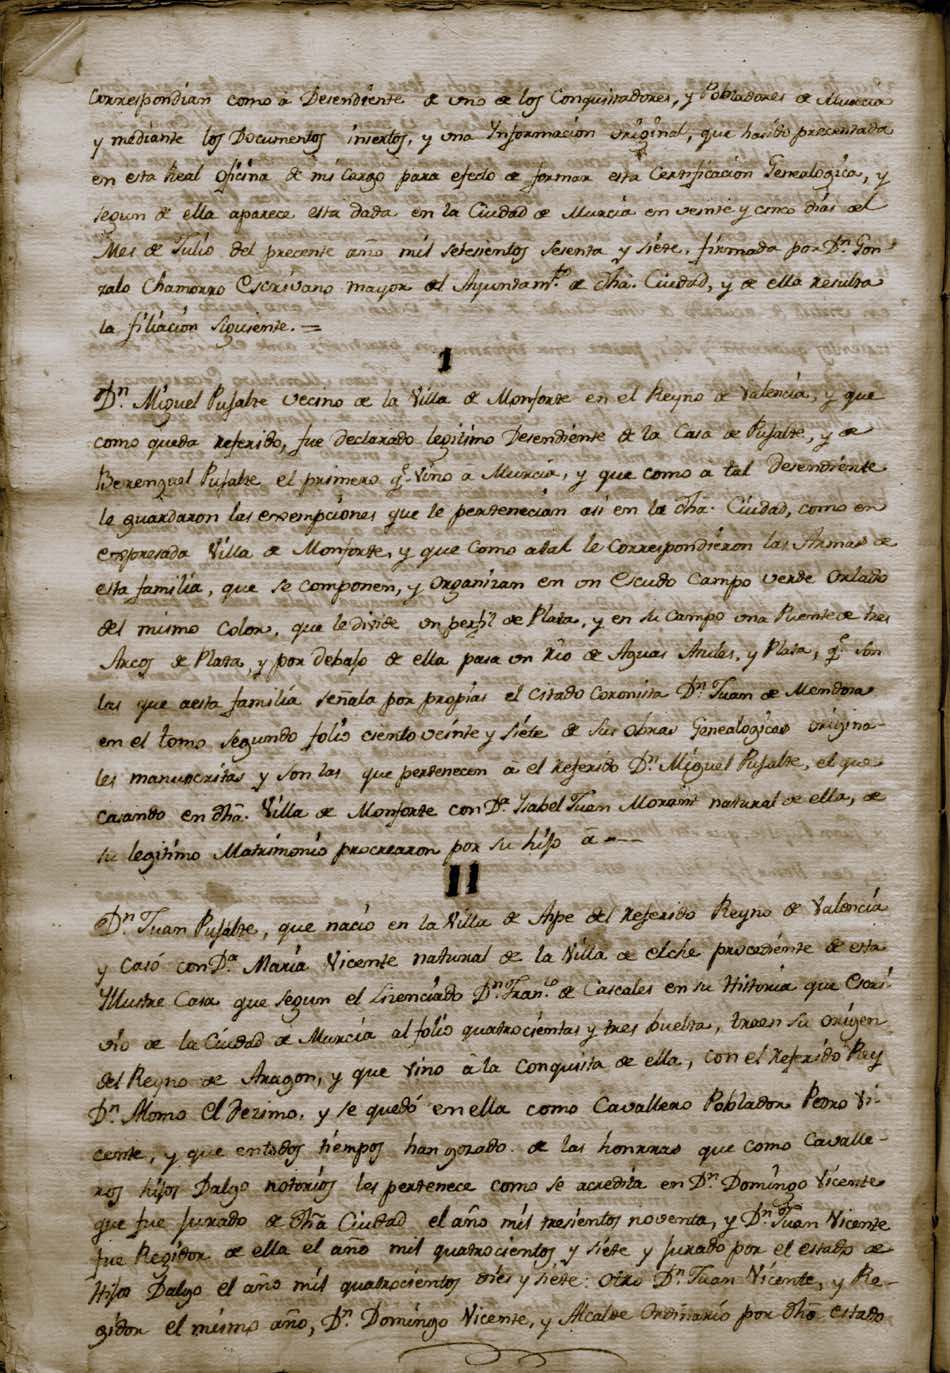 Correspondian como à Desendiente de uno de los Conquistadores, y Pobladores de Murcia
y mediante los Documentos insertos, y una Ynformacion original, que ha sido precentada
en esta Real oficina de mi Cargo para efecto de formar esta Certificacion Genealogica, y
segun de ella aparece esta dada en la Ciudad de Murcia en veinte y cinco dias del
Mes de Julio del precente año mil setesientos sesenta y siete. firmada por Dn. Gon
zalo Chamorro Escrivano mayor del Ayuntamto. de dha. Ciudad, y de ella resulta
la filiacion siguiente. =
I
Dn. Miguel Pujalte vecino de la Villa de Monforte en el Reyno de Valencia, y que
como queda referido, fue declarado legitimo Desendiente de la Casa de Pujalte, y de
Berenguel Pujalte el primero q.e vino a Murcia, y que como a tal Desendiente
le guardaron las exempciones que le pertenecian asi en la dha. Ciudad, como en
expresada Villa de Monforte, y que como atal le correspondieron las Armas de
esta familia, que se componen, y organizan en un escudo campo verde orlado
del mismo color, que le divide un perfil de Plata, y en su campo una Puente de tres
Arcos de Plata, y por debajo de ella pasa un Rio de Aguas Asules, y Plata, q.e son
las que aesta familia señala por propias el citado coronista Dn. Juan de Mendosa
en el tomo segundo folio ciento veinte y siete de sus obras Genealogicas origina-
les manuscritas y son las que pertenecen à el referido Dn. Miguel Pujalte, el que
casando en dha. Villa de Monforte con Da. Ysabel Juan Morant natural de ella, de
su legitimo Matrimonio procrearon por su hijo à
II
Dn. Juan Pujalte, que nacio en la Villa de Aspe del referido Reyno de Valencia
y Casó con Da. Maria Vicente natural de la Villa de elche procediente de esta
Yllustre Casa que segun el Lizenciado Dn. Franco. de Cascales en su Historia que Escri-
vio de la Ciudad de Murcia al folio quatrocientas y tres buelta, traen su origen
del Reyno de Aragon, y que vino à la Conquista de ella, con el referido Rey
Dn. Alonso el Dezimo, y se quedó en ella como Cavallero Poblador Pedro Vi-
cente, y que en todos tiempos han gozado de las honrras que como Cavalle-
ros hijos Dalgo notorios les pertenece como se acredita en Dn. Domingo Vicente
que fue Jurado de dha Ciudad el año mil tresientos noventa, y Dn. Juan Vicente
fue Regidor de ella el año mil quatrocientos y siete y Jurado por el estado de
Hijos Dalgo el año mil quatrocientos dies y siete: otro Dn. Juan Vicente, y Re-
gidor el mismo año, Dn. Domingo Vicente, y Alcalde Ordinario por dho estado